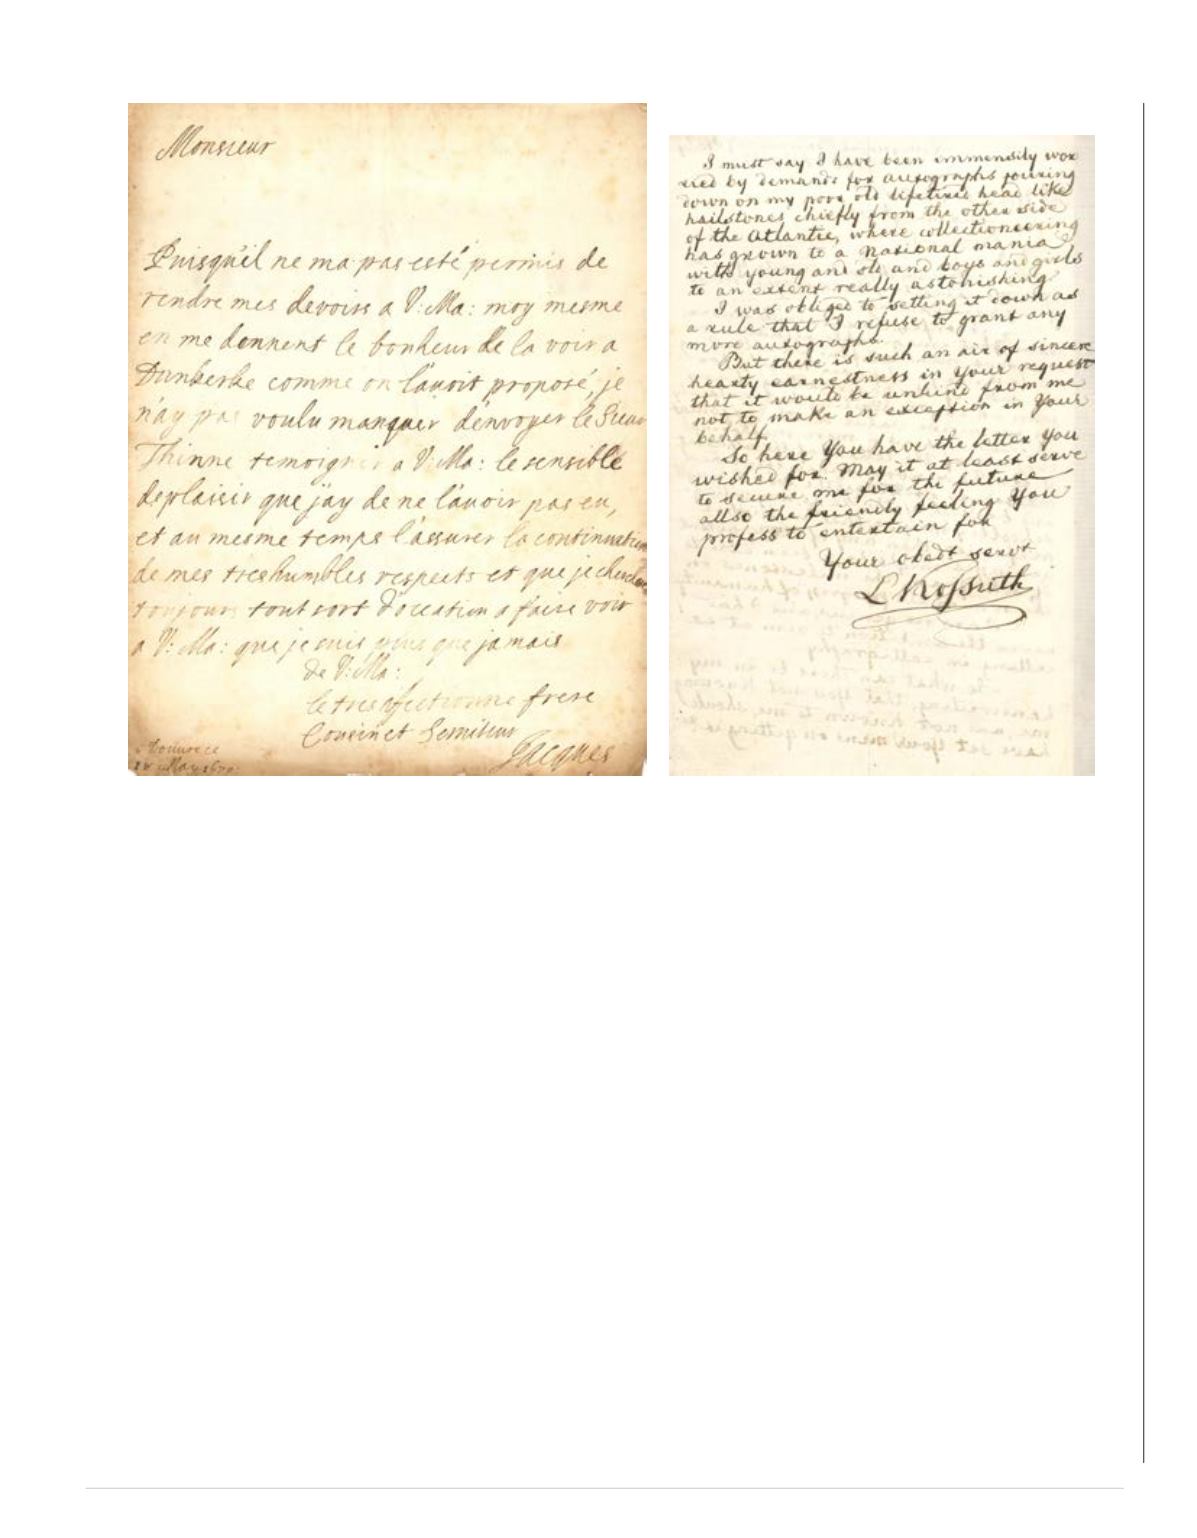 Monsieur
Puisqu'il ne ma pas esté permis de
rendre mes devoirs a V: Ma: moy mesme
en me donnent le bonheur de la voir a
Dunkerke comme on l'auoit proposé, je
n'ay pas voulu manquer d'envoyer le Sieur
Thinne temoigner a V: Ma: le sensible
deplaisir que j'ay de ne l'auoir pas eu,
et au mesme temps l'assurer la continuation
de mes treshumbles respects et que je chercheray
toujours tout sort d'occation a faire voir
a V: Ma: que je suis plus que jamais
de V: Ma:
le tresaffectionne frere
Cousin et Serviteur
Jacques
May
I must say I have been immensily wor
ried by demands for autographs pouring
down on my poor old lifetired head like
hailstones chiefly from the other side
of the Atlantic, where collectioneering
has grown to a National mania
with young and old and boys and girls
to an extent really astonishing
I was obliged to setting it down as
a rule that I refuse to grant any
more autographs.
But there is such an air of sincere
hearty earnestness in your request
that it would be unkind from me
not to make an exception in Your
behalf.
So here You have the letter You
wished for. May it at least serve
to secure me for the future
allso the friendly feeling You
profess to entertain for
Your obedt servt
L Kossuth